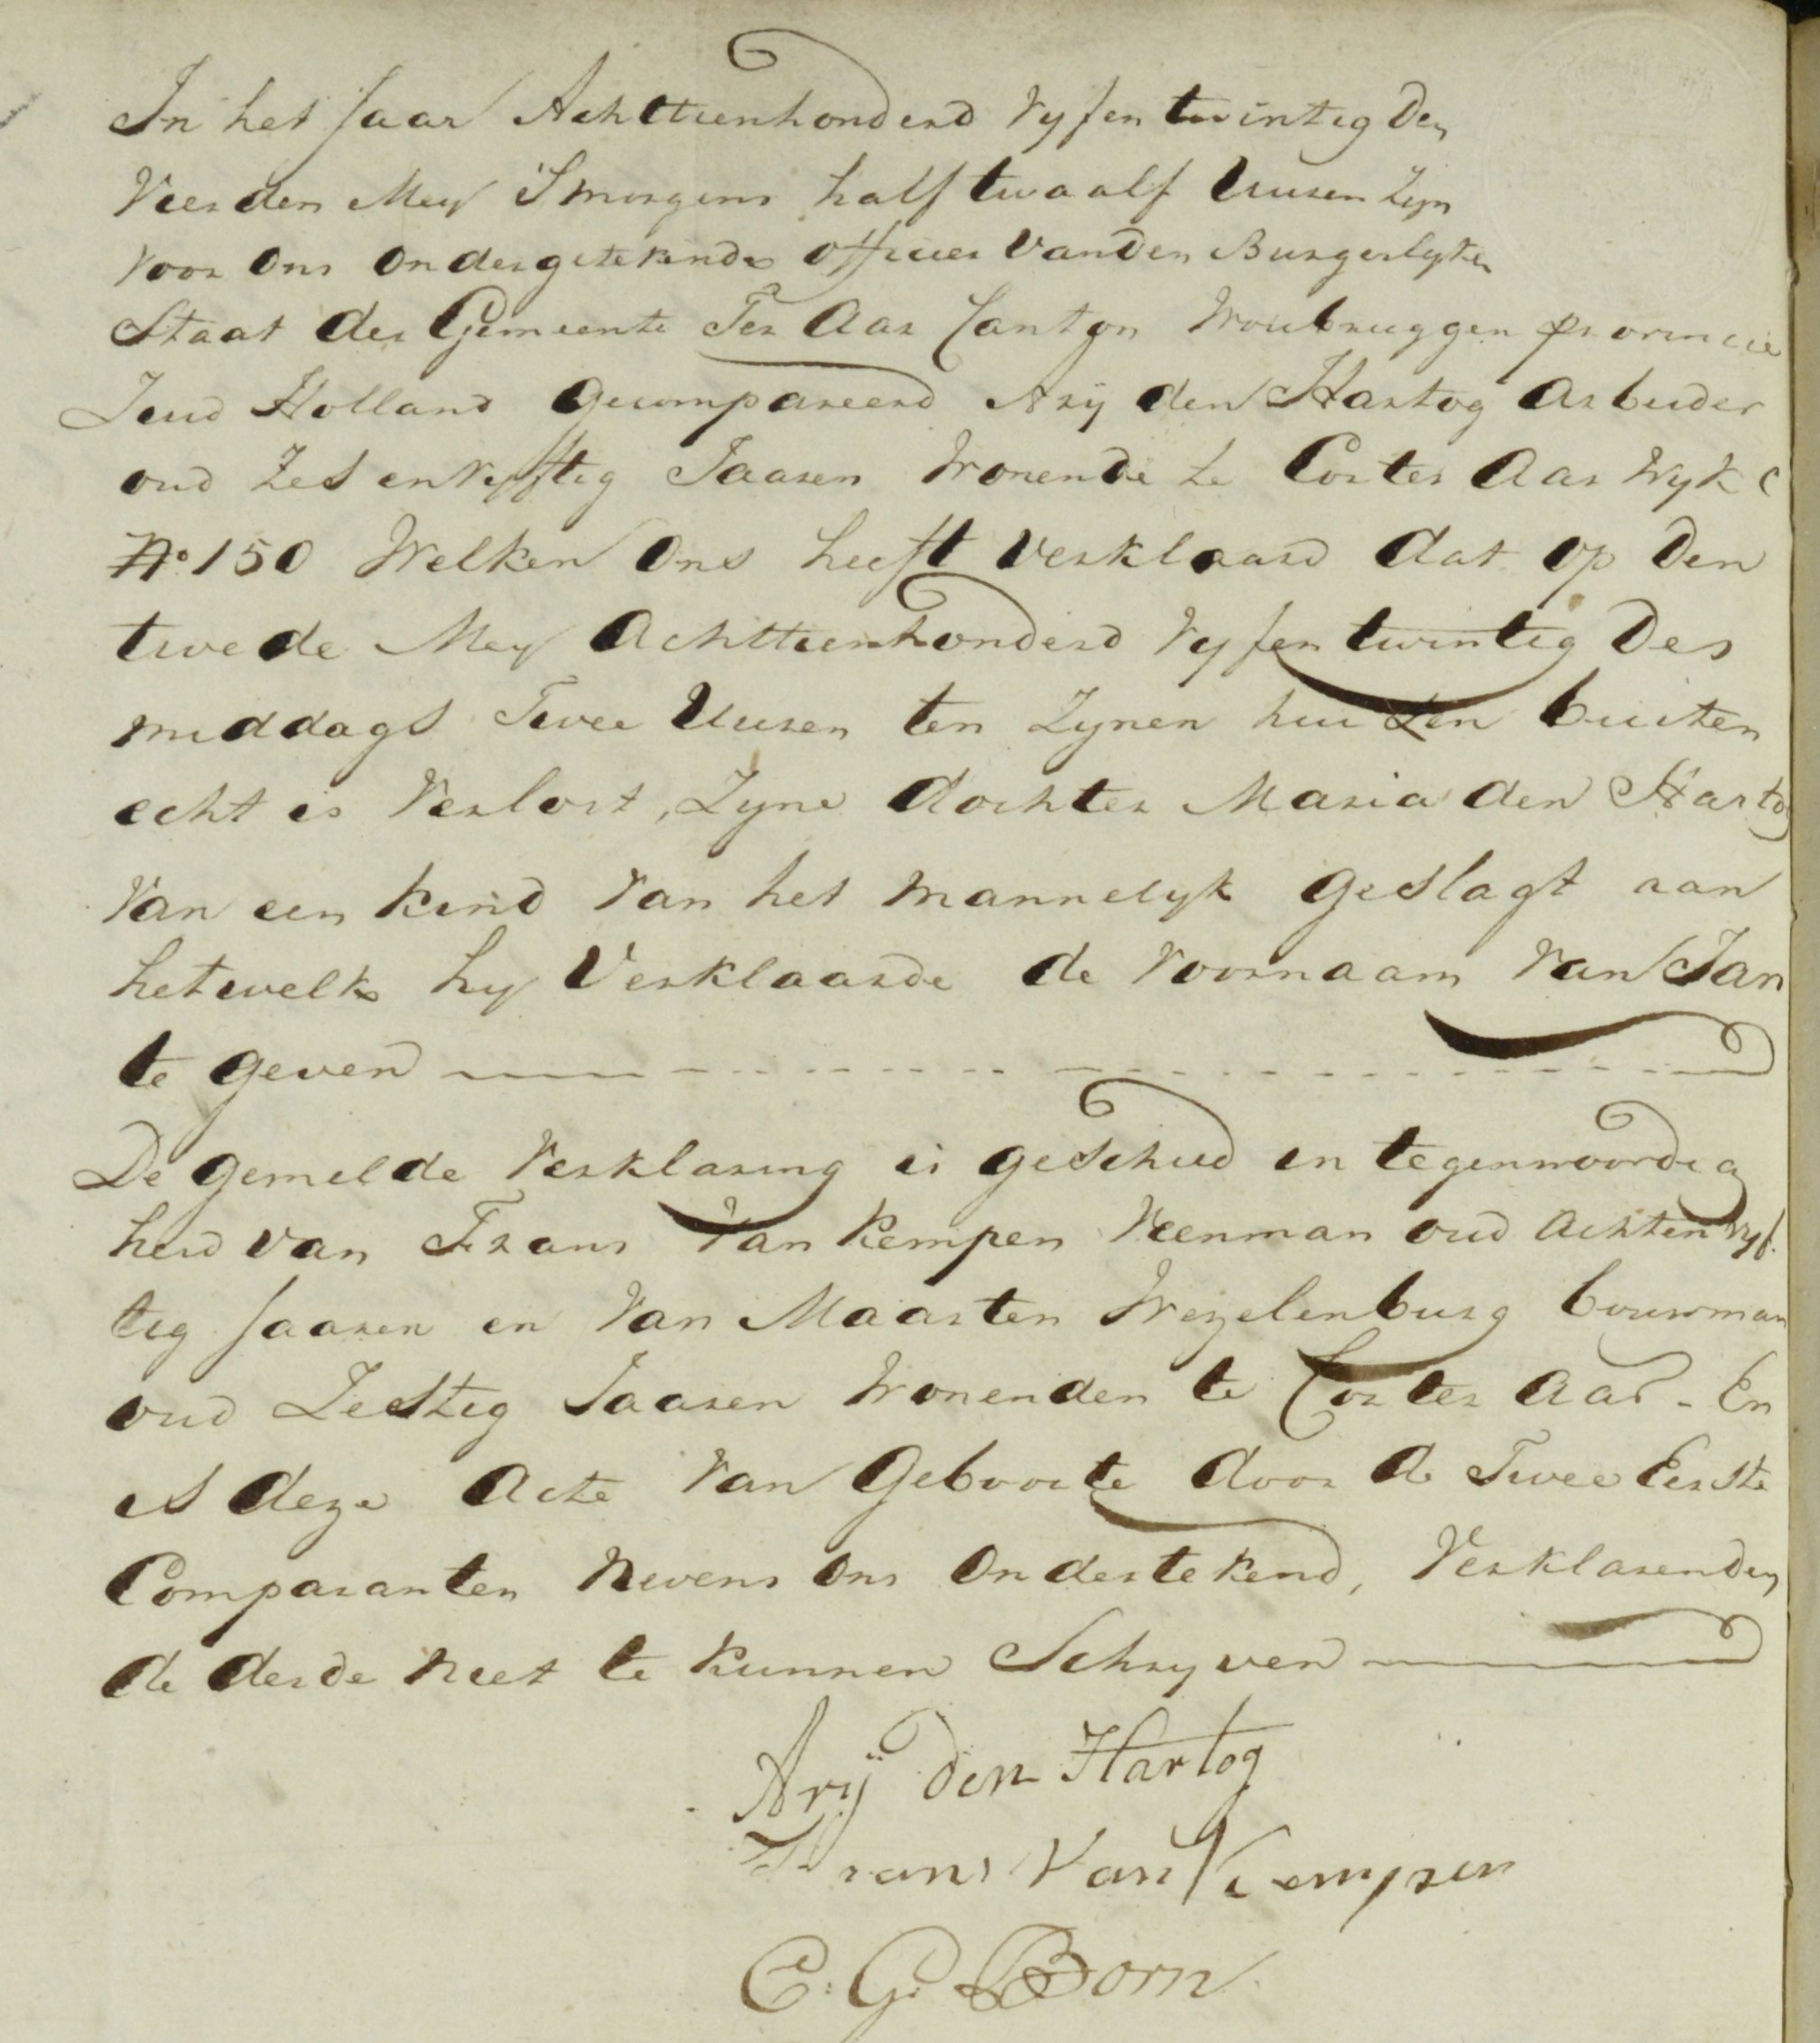 In het Jaar Achttienhonderd Vyfentwintig Den
Vierden Mey Smorgens half twaalf Uuren Zyn
voor Ons Ondergetekende officier van Den Burgerlyken
Staat der Gemeente Ter Aar Canton Woubruggen provincie
Zuid Holland gecompareerd Arij den Hartog Arbeider
oud Zes en vyftig Jaaren Wonende te Corter Aar Wyk C
No 150 Welken Ons heeft Verklaard dat op Den
twede Mey Achttienhonderd Vyfentwintig Des
middags Twee Uuren ten Zynen huizen buiten
echt is Verlost, Zyne dochter Maria den Hartog
Van een kind Van het Mannelyk geslagt aan
hetwelk hy Verklaarde de Voornaam Van Jan
te geven
De gemelde Verklaring is geschied in tegenwoordig
heid van Frans Van Kempen Veenman oud Achtenvyf
tig Jaaren en Van Maarten Wezelenburg bouwman
oud Zestig Jaaren Wonenden te Corter Aar - En
is deze Acte Van Geboorte door de Twee Eerste
Comparanten Nevens Ons Ondertekend, Verklarenden
de derde Niet te kunnen Schryven
Arij den Hartog
Frans Van Kempen
C. G. Born